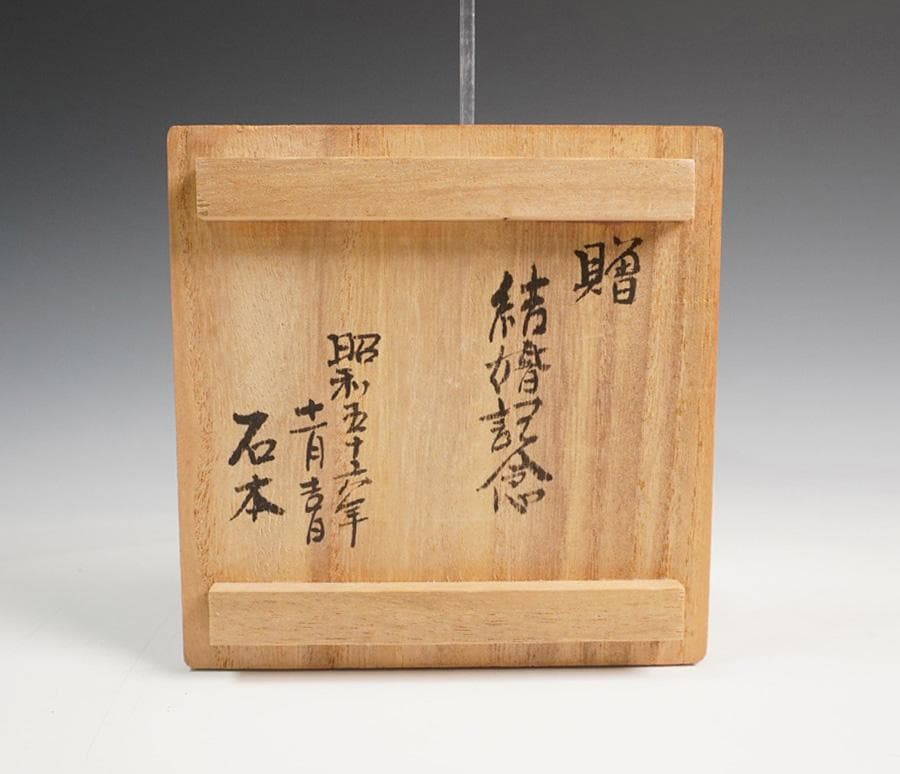 贈
結婚記念
昭和五十六年
十一月吉日
石本